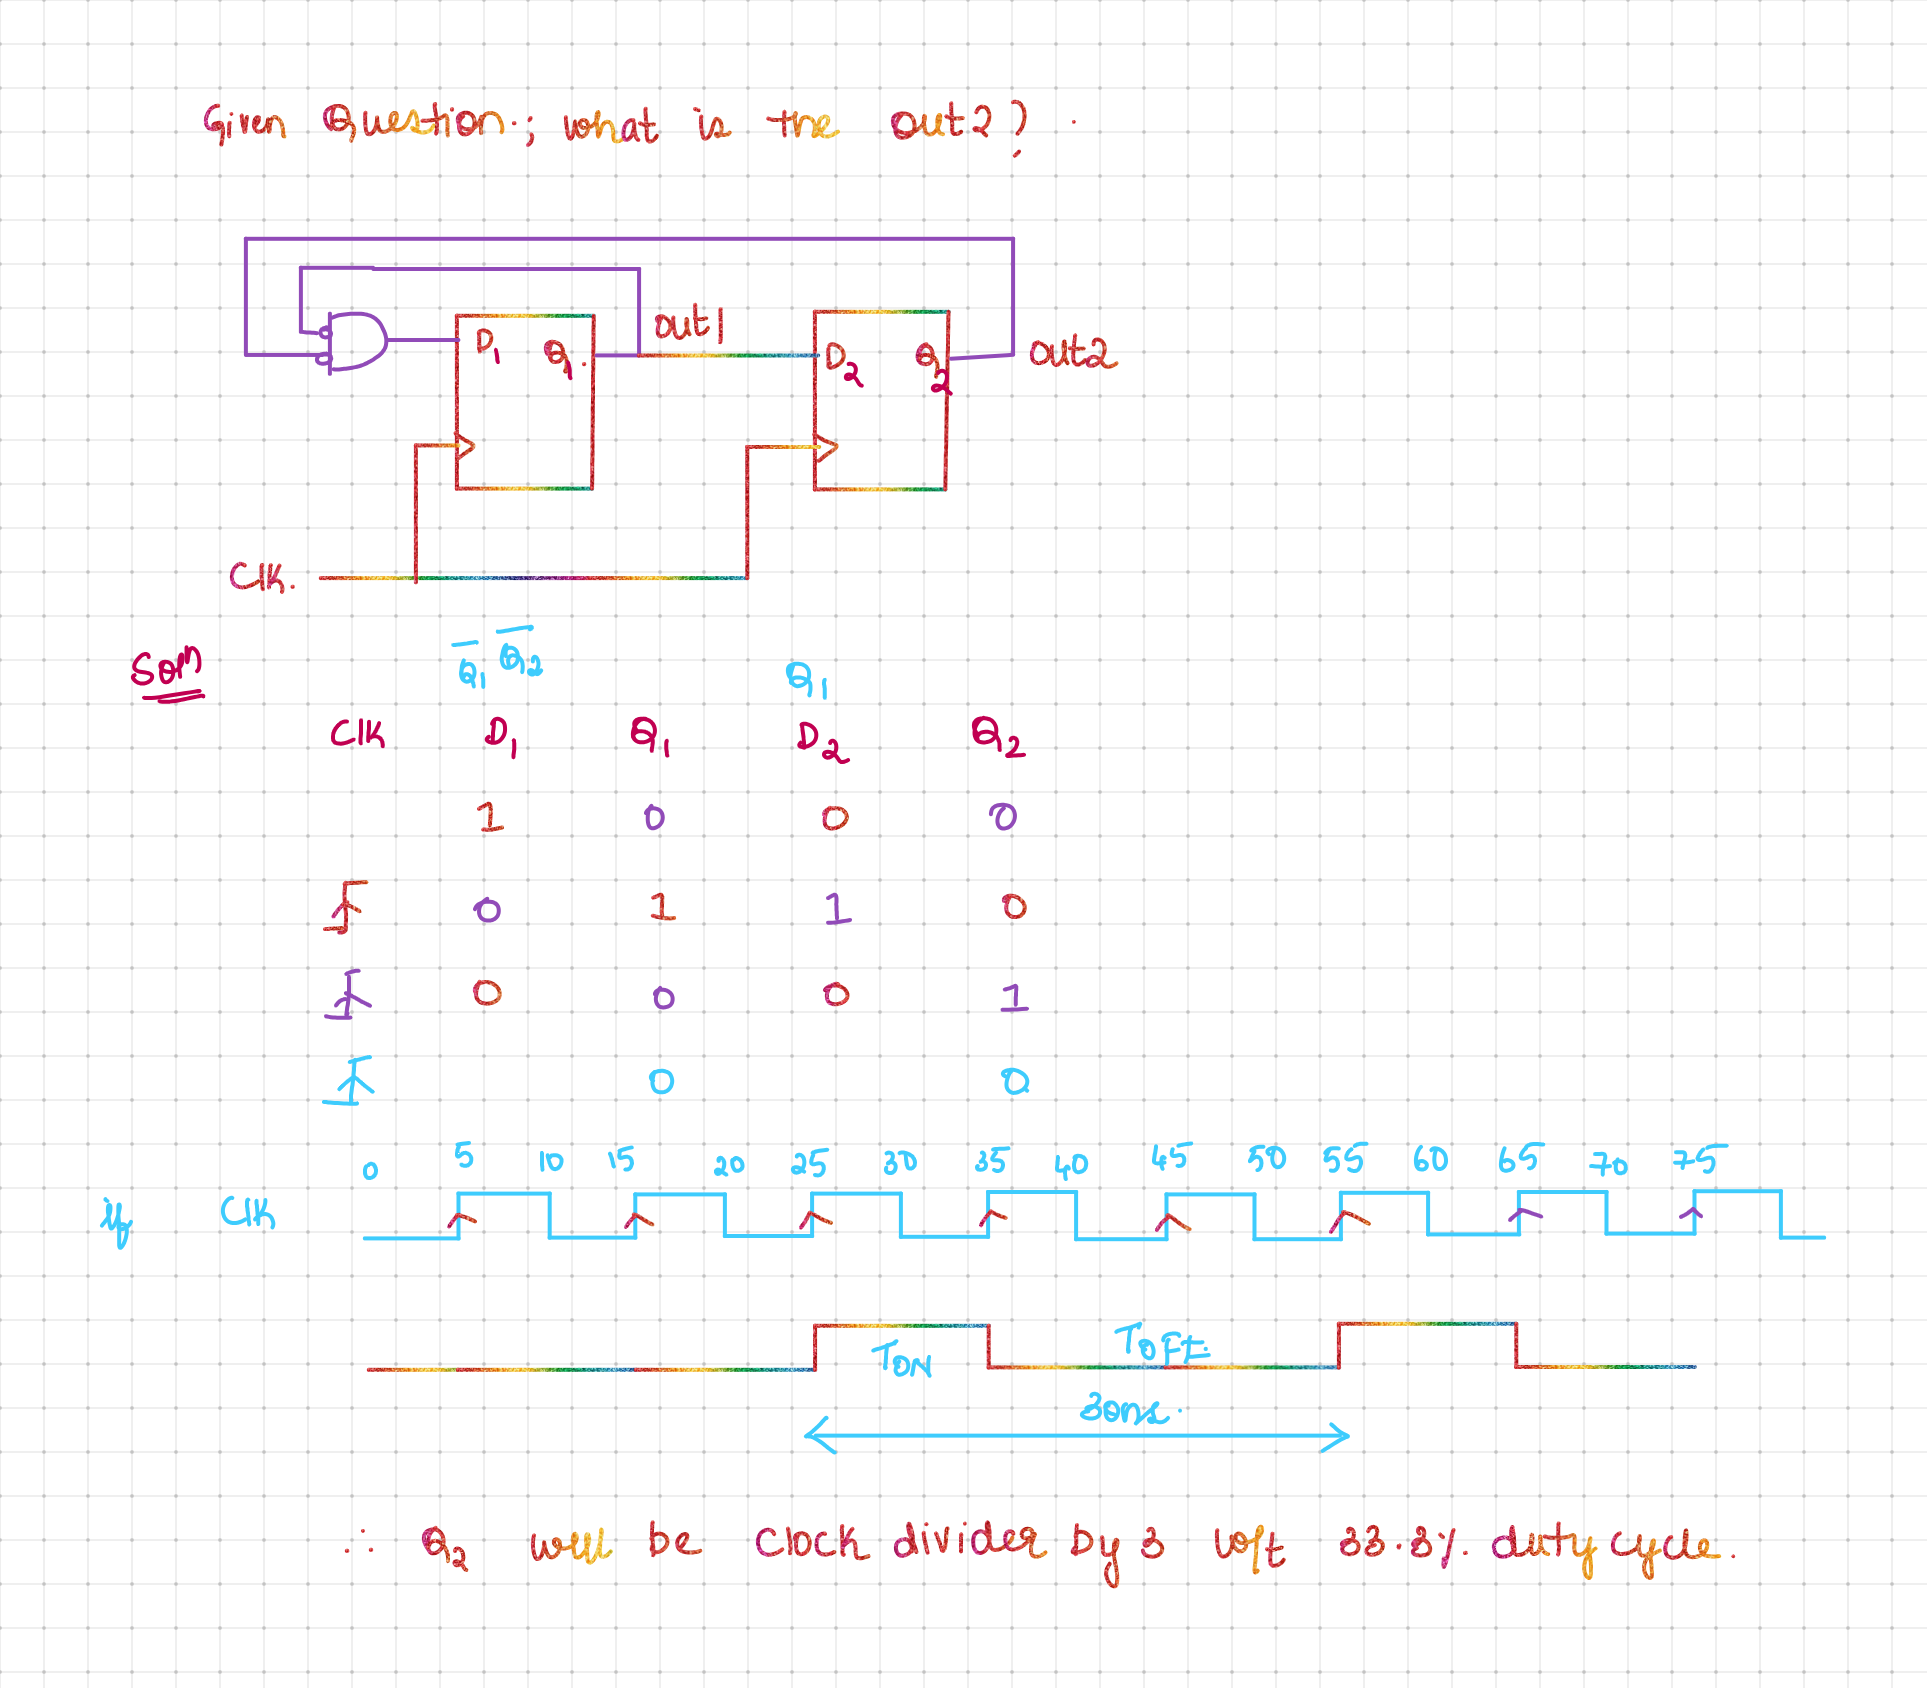 Given Question.; what is the out2?
D1 Q1. out1 D2 Q2 out2
Clk.
Soln
Q̅1 Q̅2 Q1
Clk D1 Q1 D2 Q2
1 0 0 0
0 1 1 0
0 0 0 1
0 0
0 5 10 15 20 25 30 35 40 45 50 55 60 65 70 75
if Clk
TON TOFF.
30ns.
∴ Q2 will be Clock divider by 3 with 33.3%. duty cycle.